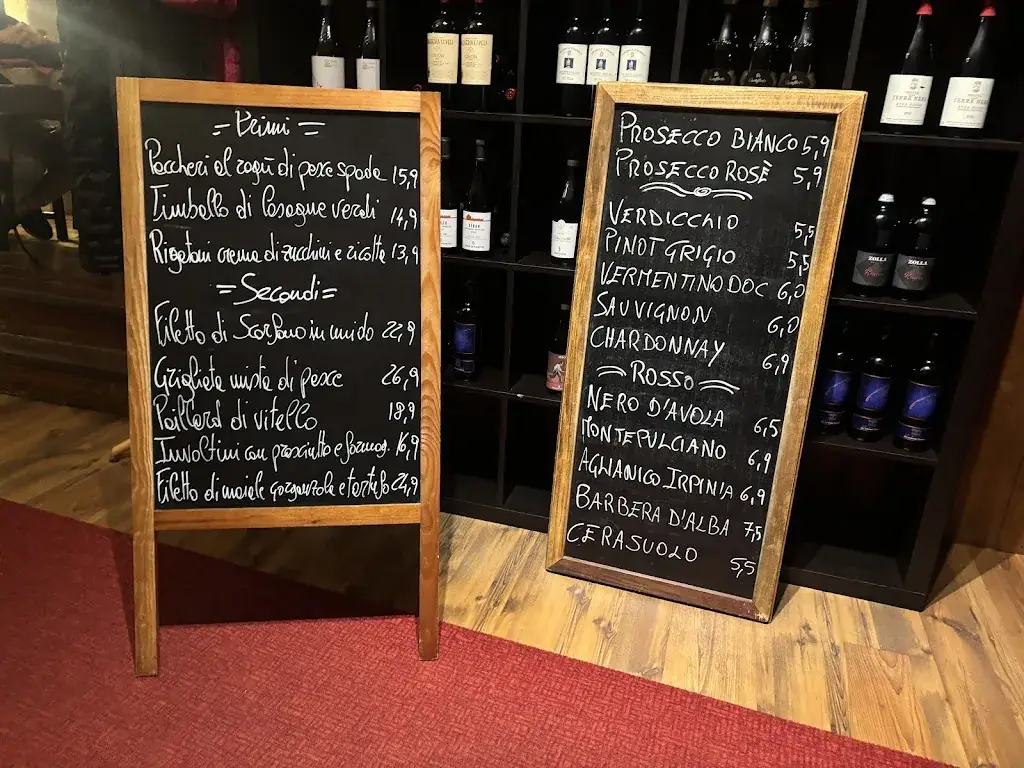 = Primi =
Paccheri al ragù di pesce spada 15,9
Timballo di lasagne verdi 14,9
Rigatoni crema di zucchini e ricotta 13,9
= Secondi =
Filetto di Scorfano in umido 22,9
Grigliata mista di pesce 26,9
Paillard di vitello 18,9
Involtini con prosciutto e formag. 16,9
Filetto di maiale gorgonzola e tartufo 24,9
PROSECCO BIANCO 5,9
PROSECCO ROSÈ 5,9
VERDICCHIO 5,5
PINOT GRIGIO 5,5
VERMENTINO DOC 6,0
SAUVIGNON 6,0
CHARDONNAY 6,9
ROSSO
NERO D'AVOLA 6,5
MONTEPULCIANO 6,9
AGLIANICO IRPINIA 6,9
BARBERA D'ALBA 7,5
CERASUOLO 5,5
TERRE NERE
TERRE NERE
ZOLLA
ZOLLA